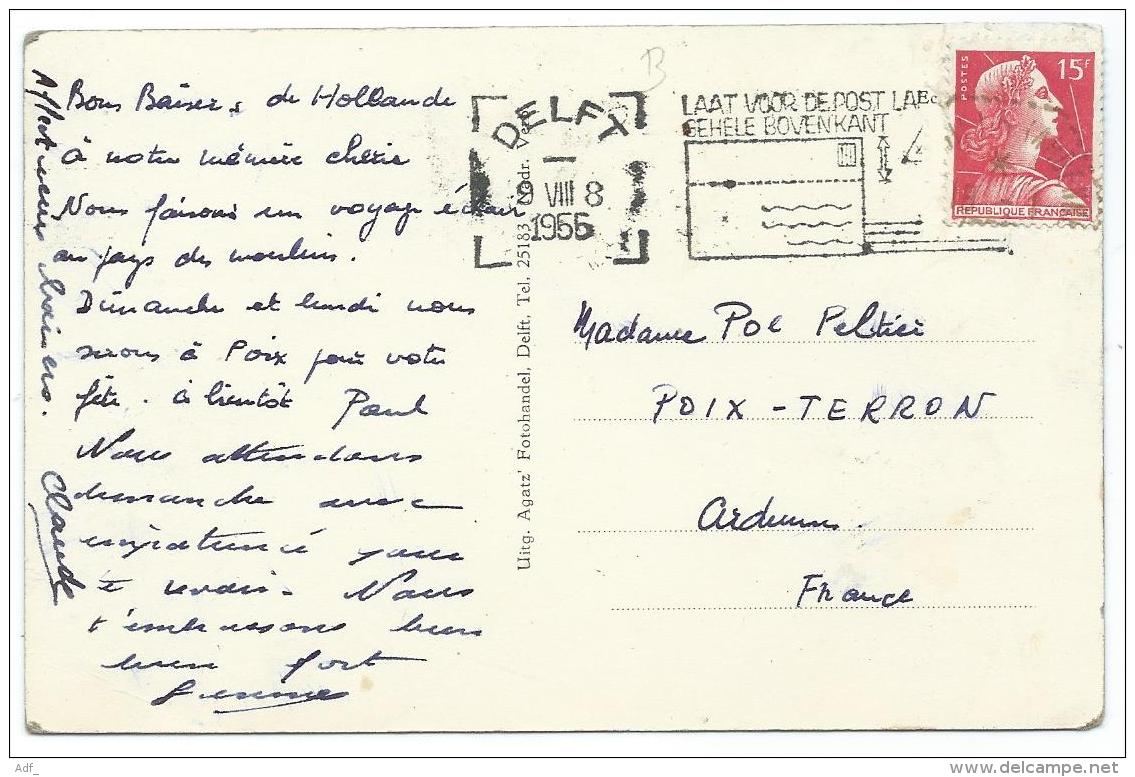 Bons Baisers de Hollande
à notre mémère chérie
Nous faisons un voyage éclair
au pays des moulins.
Dimanche et lundi nous
serons à Poix pour votre
fête. à bientôt Paul
Nous attendons
dimanche avec
impatience pour
te revoir. Nous
t'embrassons bien
bien fort
Affectueux baisers.
Claude
DELFT
9 VIII 8
1956
LAAT VOOR DE POST
GEHELE BOVENKANT
POSTES
15F
REPUBLIQUE FRANÇAISE
B
Uitg. Agatz' Fotohandel, Delft, Tel. 25183
Madame Pol Peltier
POIX-TERRON
Ardennes.
France
Adf_
www.delcampe.net